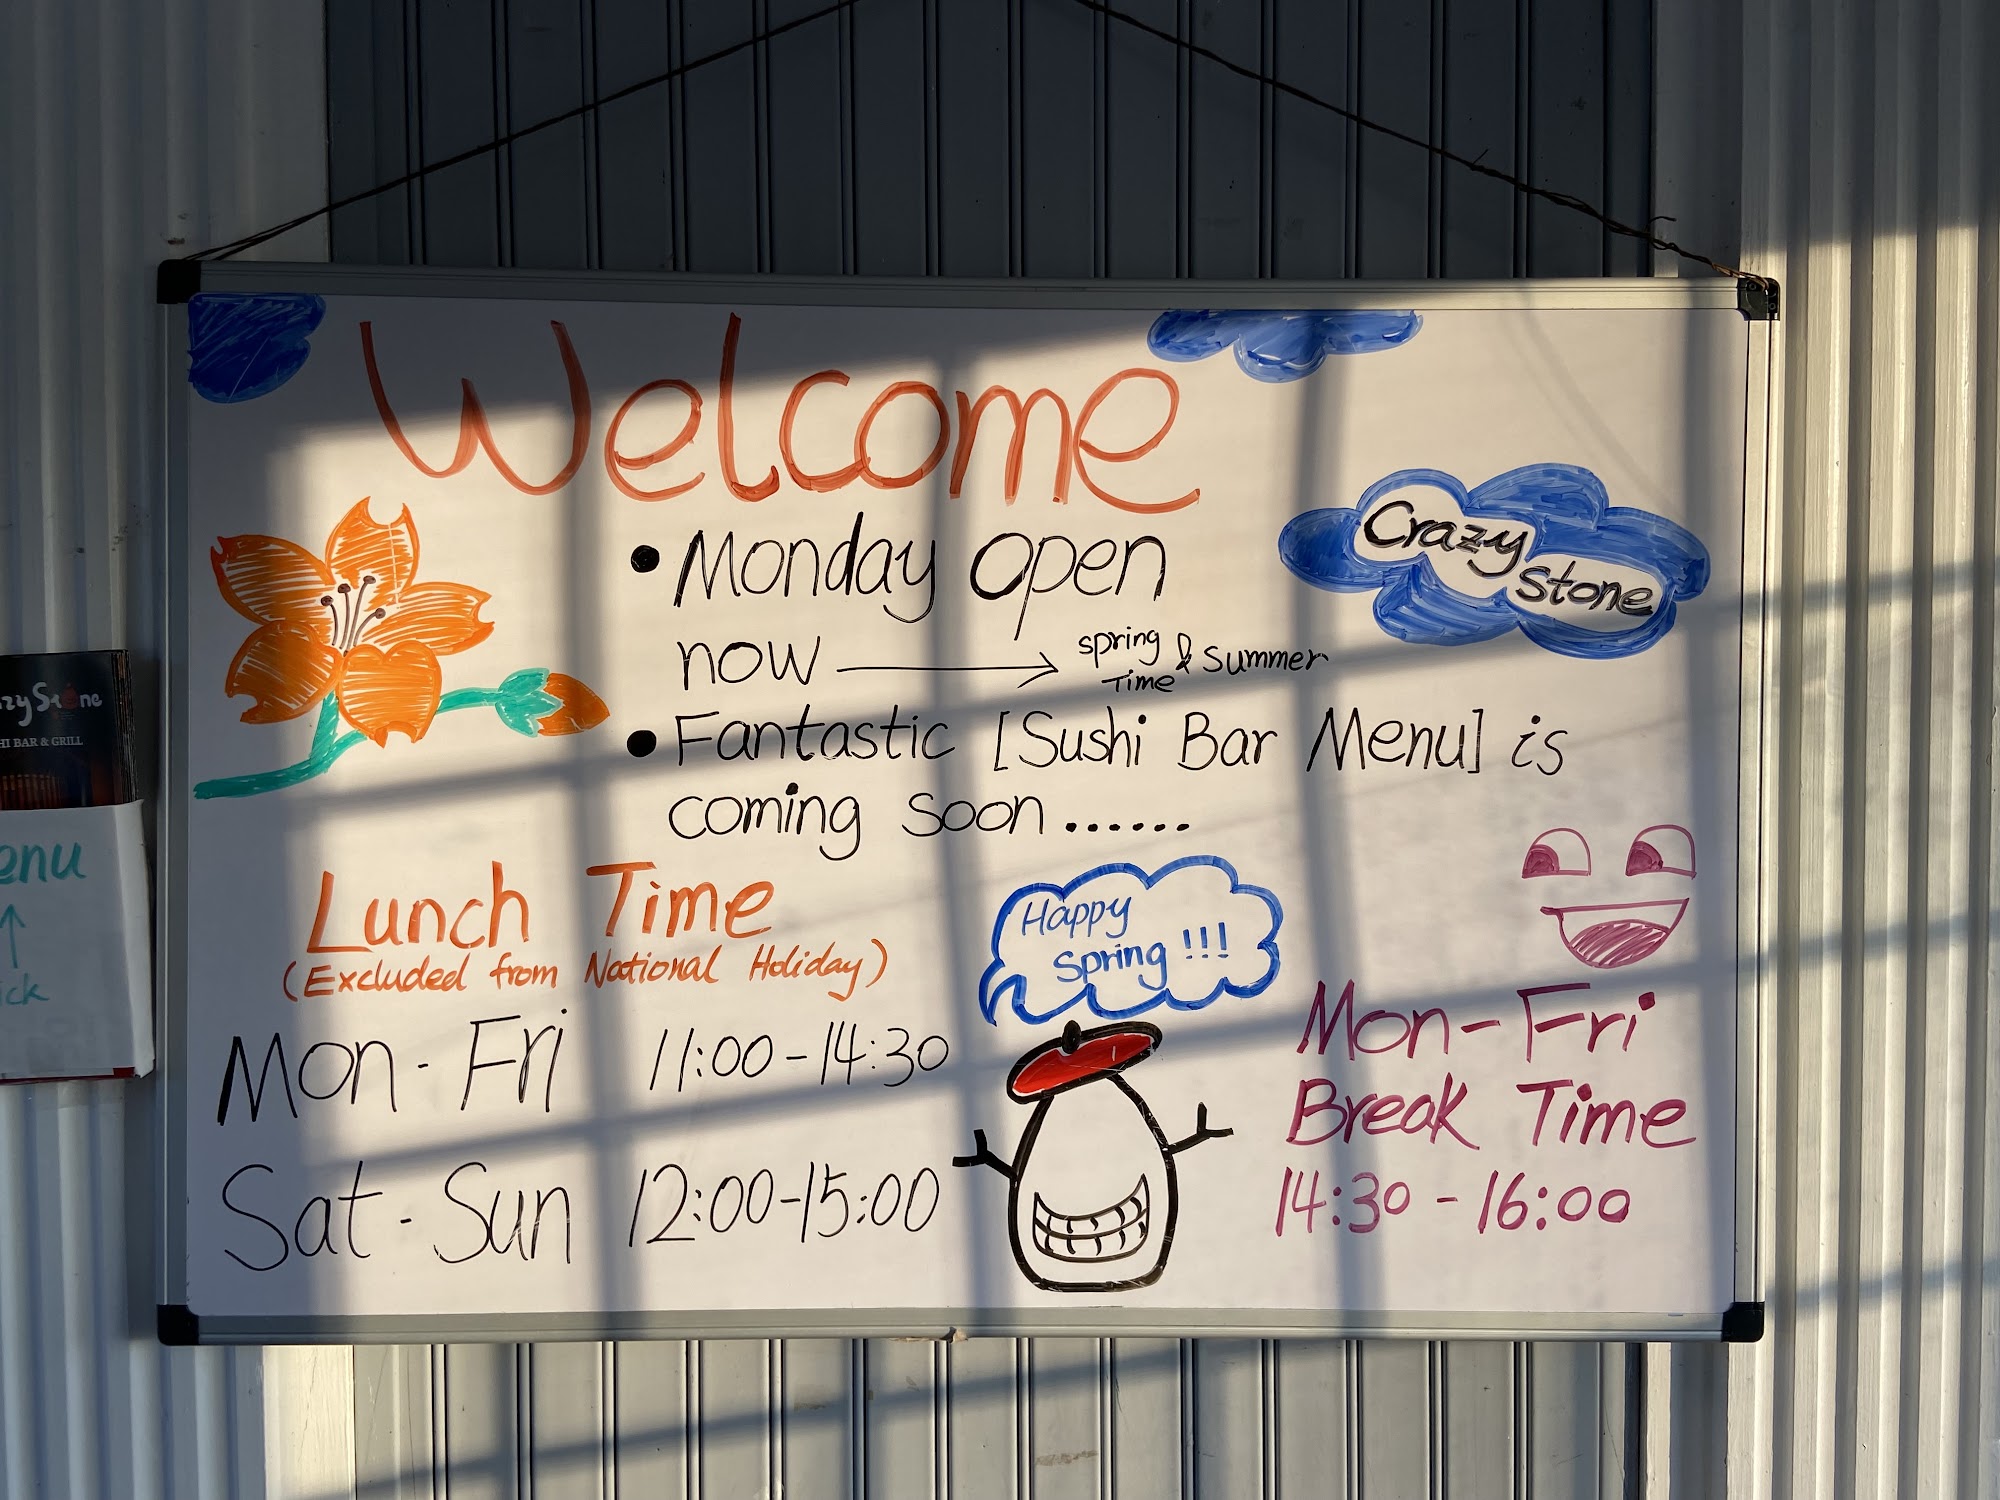 Welcome
• Monday open
now → spring Time & summer
Crazy Stone
• Fantastic [Sushi Bar Menu] is
coming soon ......
Lunch Time
(Excluded from National Holiday)
Mon - Fri 11:00 - 14:30
Sat - Sun 12:00 - 15:00
Happy
Spring !!!
Mon - Fri
Break Time
14:30 - 16:00
BAR & GRILL